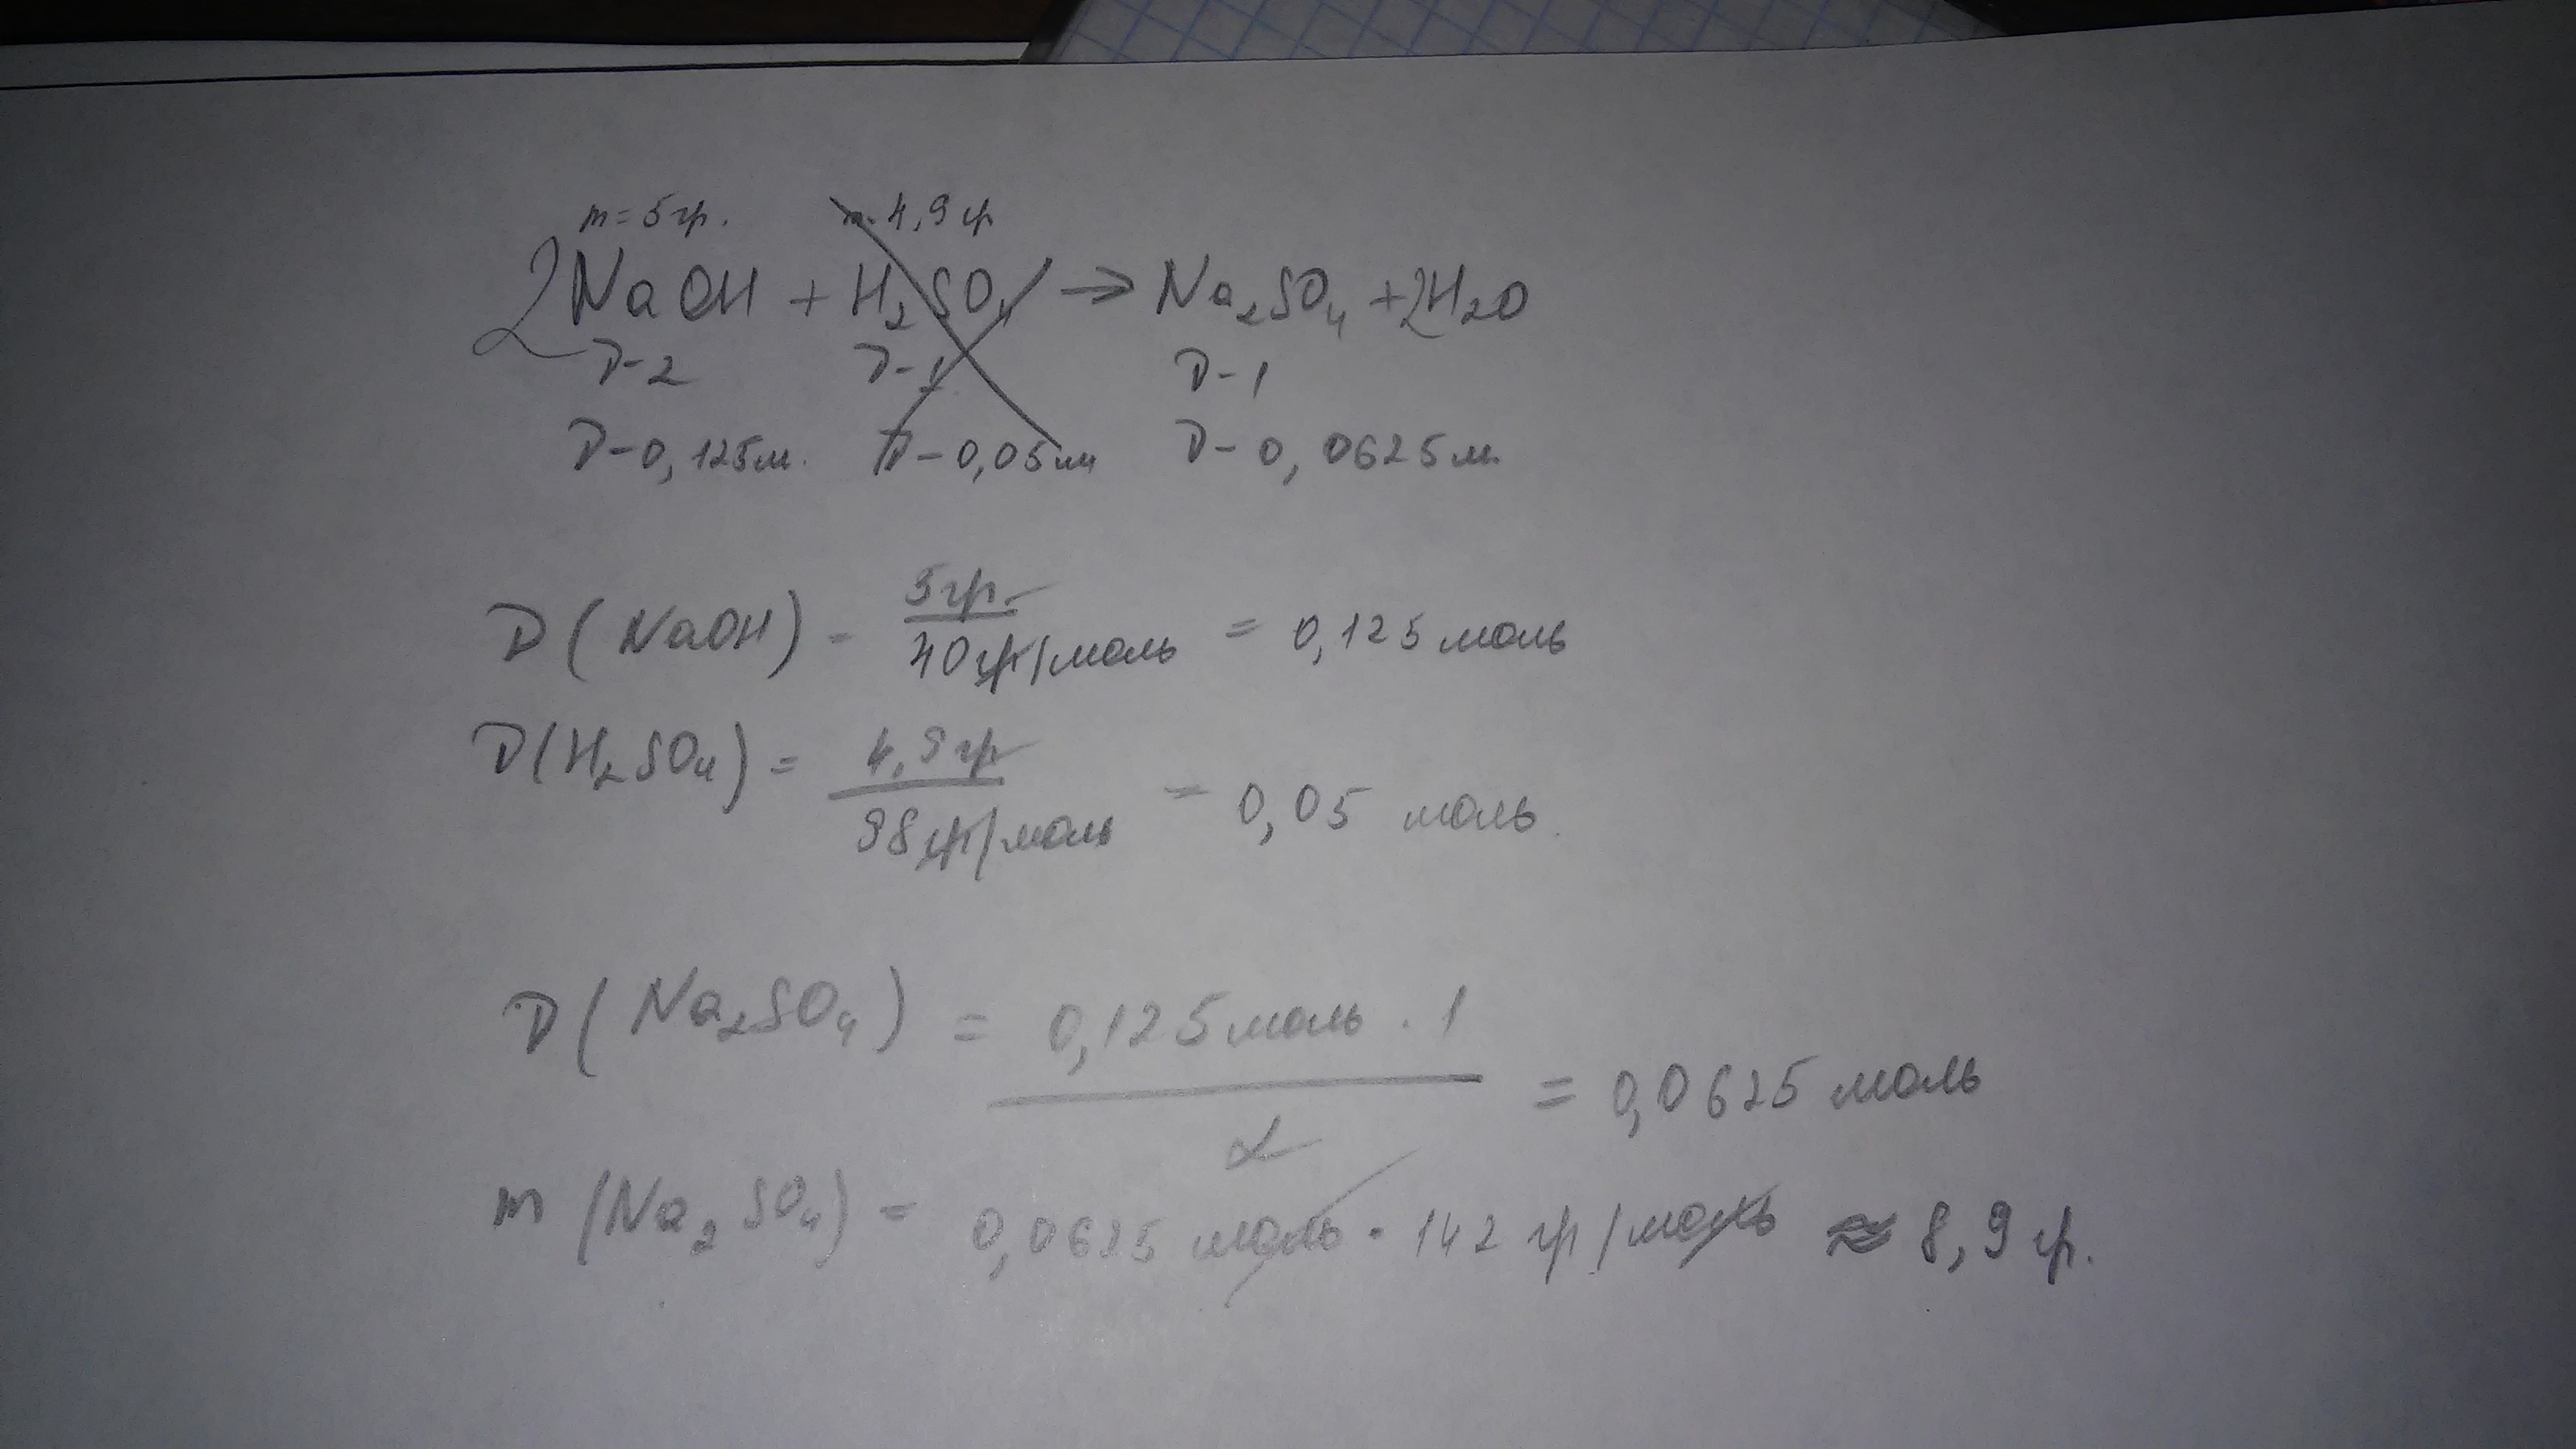 m=5гр. m=4,9гр
2NaOH + H₂SO₄ → Na₂SO₄ + 2H₂O
D-2 D-1 D-1
D-0,125м. D-0,05м D-0,0625м.
D(NaOH) = 5гр. / 40гр/моль = 0,125 моль
D(H₂SO₄) = 4,9гр / 98гр/моль = 0,05 моль.
D(Na₂SO₄) = 0,125 моль · 1 / 2 = 0,0625 моль
m(Na₂SO₄) = 0,0625 моль · 142 гр/моль ≈ 8,9 гр.